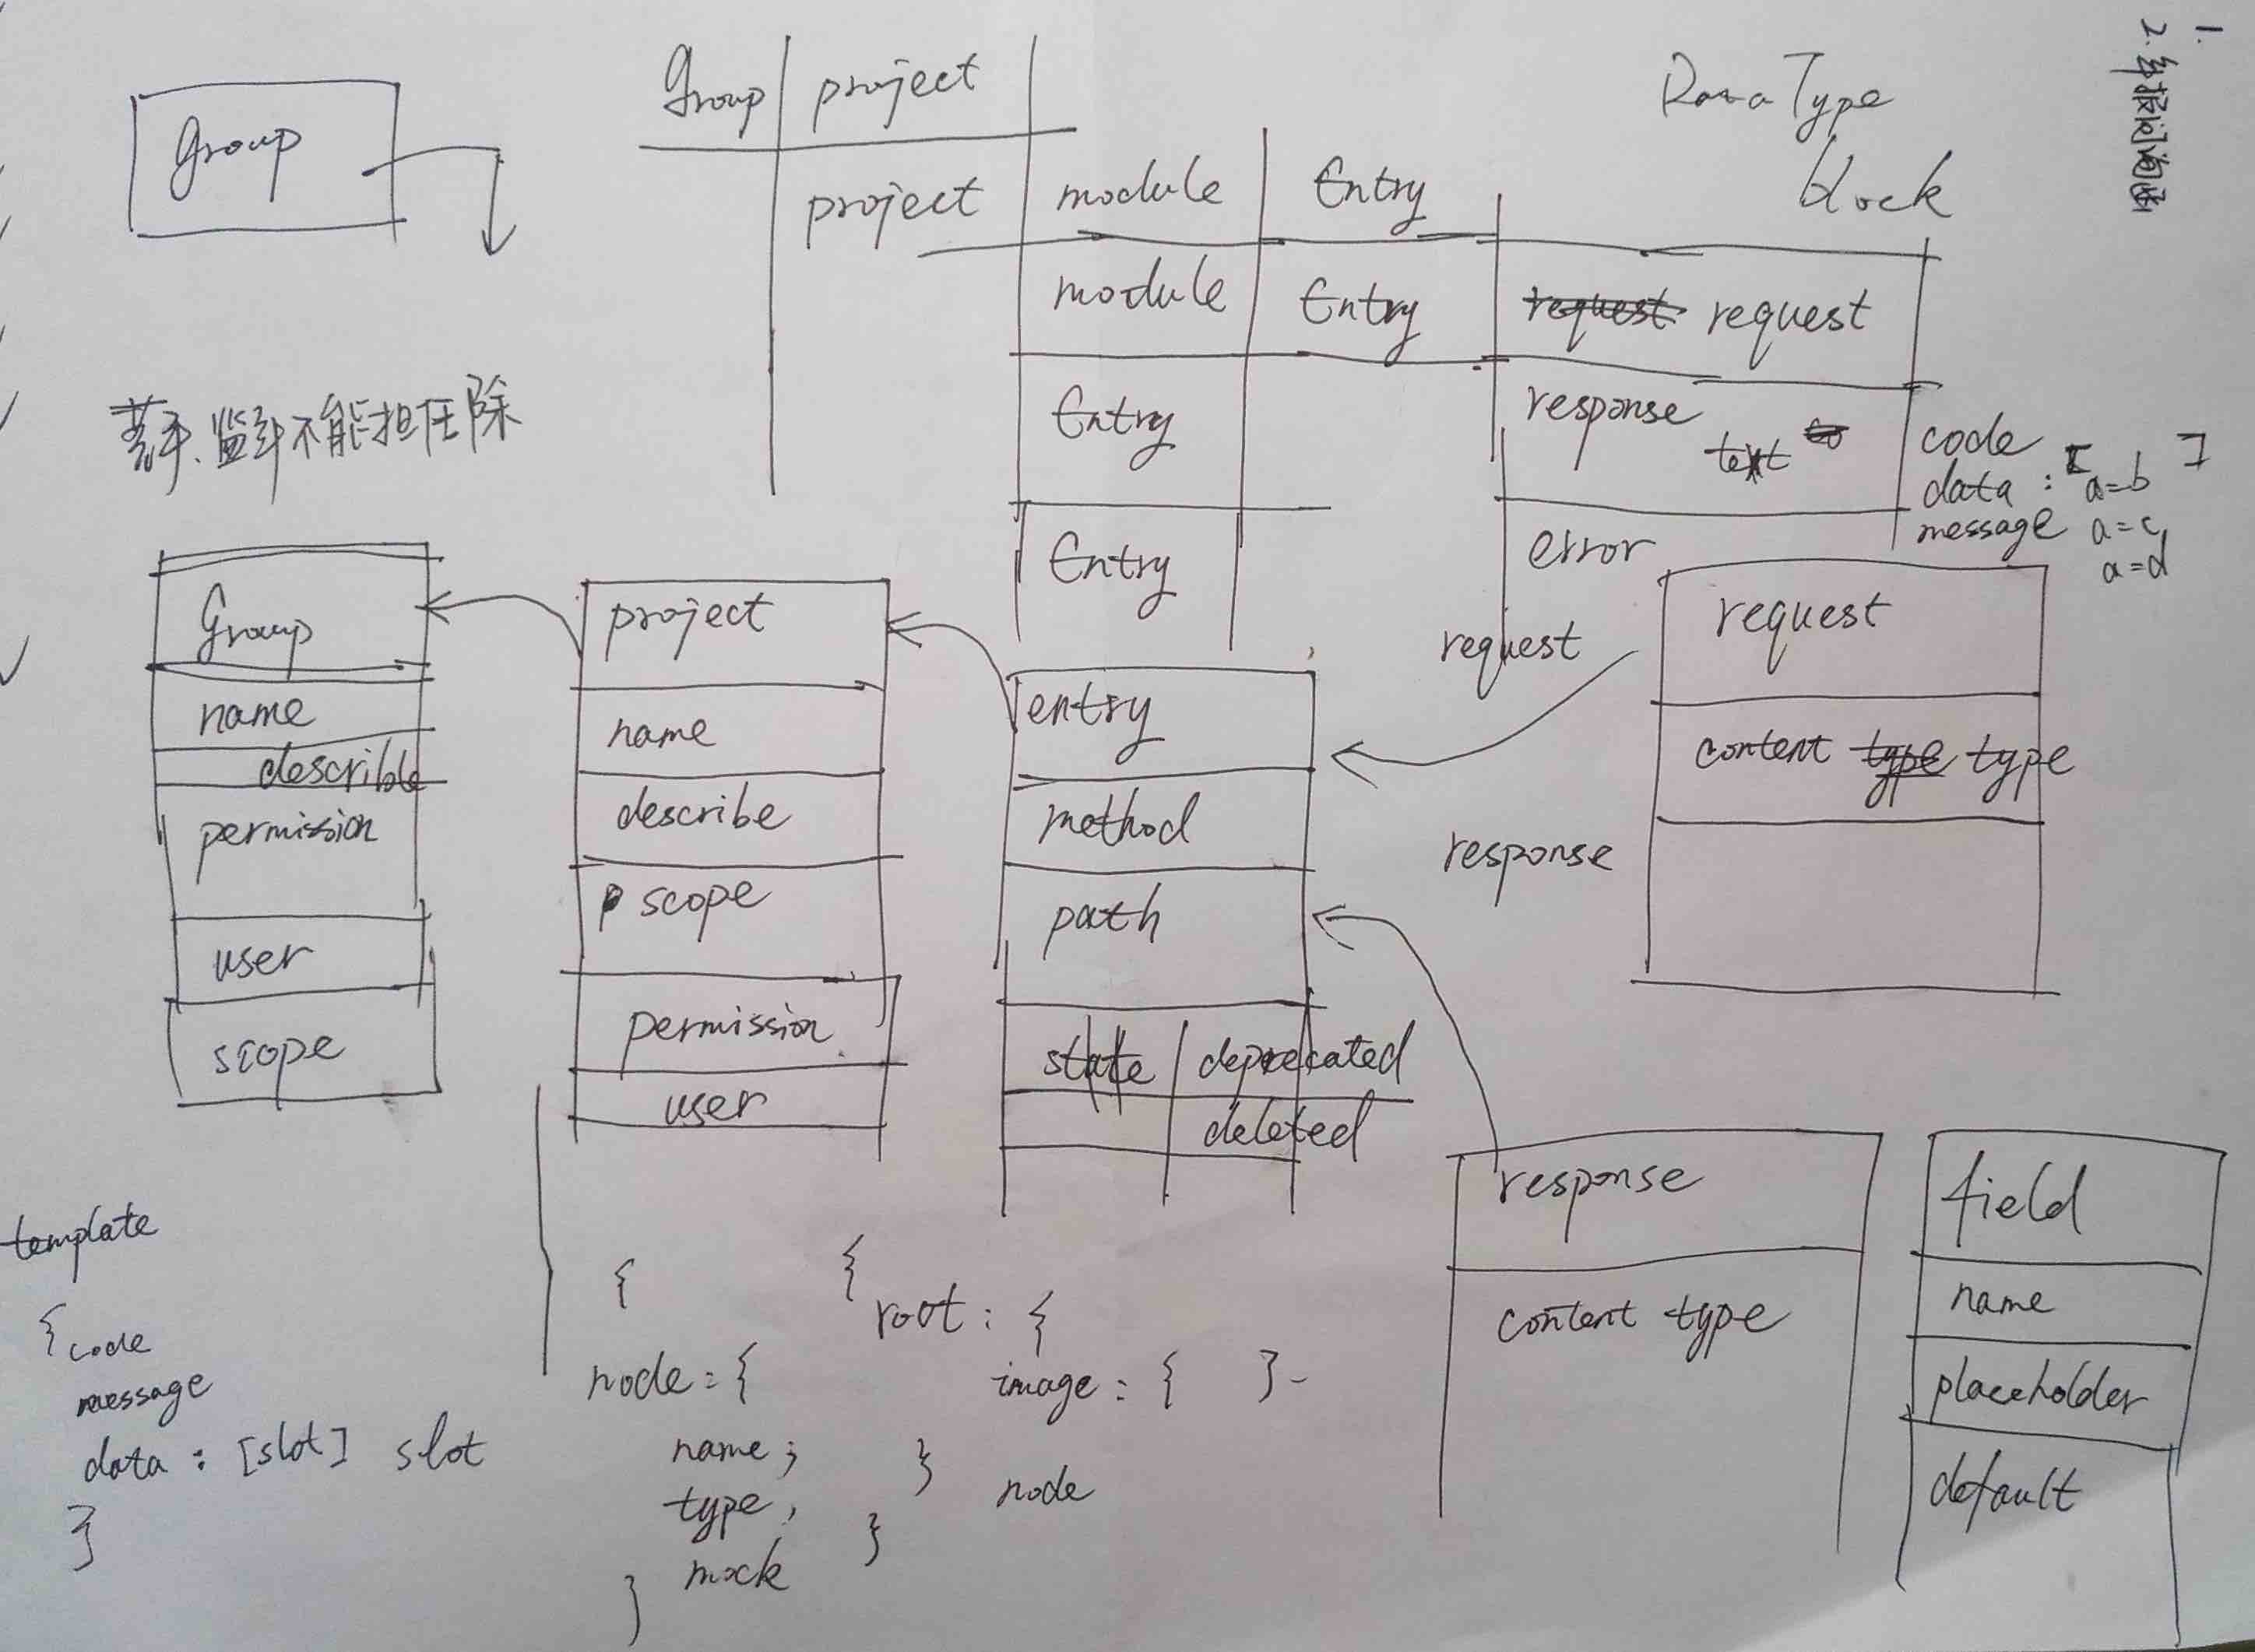 Group
Group project
project module Entry
module Entry request request
Entry response
text
Entry error
Data Type
block
code
data : [ a=b ]
message a=c
a=d
1.
2.
不能担任
Group
name
describle
permission
user
scope
project
name
describe
scope
permission
user
entry
method
path
state deprecated
deleted
request
response
request
content type type
response
content type
field
name
placeholder
default
template
{ code
message
data : [slot] slot
}
{
node : {
name ;
type ,
mock
}
{
root : {
image : { }
}
node
}